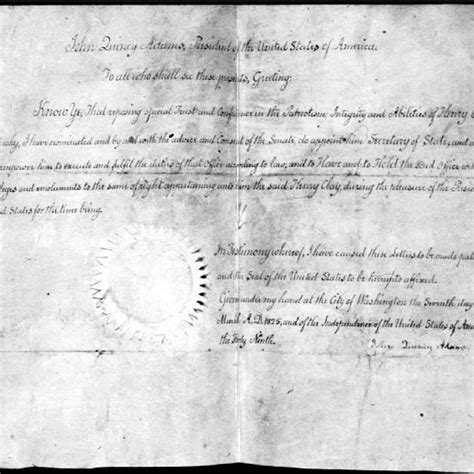 John Quincy Adams, President of the United States of America.
To all who shall see these presents, Greeting:
Know Ye, That reposing special Trust and Confidence in the Patriotism, Integrity and Abilities of Henry
Clay, I have nominated and by and with the advice and Consent of the Senate, do appoint him Secretary of State, and a
empower him to execute and fulfil the duties of that Office according to law; and to Have and to Hold the said Office
and emoluments to the same of right appertaining unto him the said Henry Clay, during the pleasure of the Pres
ed States for the time being.
In Testimony whereof, I have caused these Letters to be made pat
and the Seal of the United States to be hereunto affixed.
Given under my hand at the City of Washington the Seventh day
March A.D. 1825, and of the Independence of the United States of Am
the Forty Ninth.
John Quincy Adams